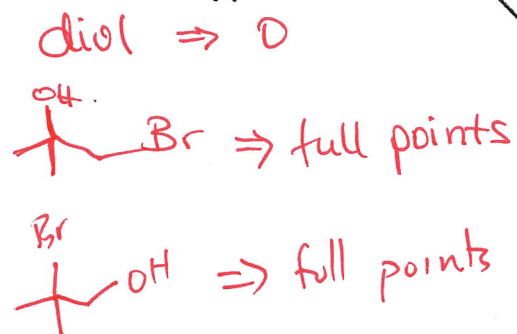 diol ⇒ 0
OH.
Br ⇒ full points
Br
OH ⇒ full points